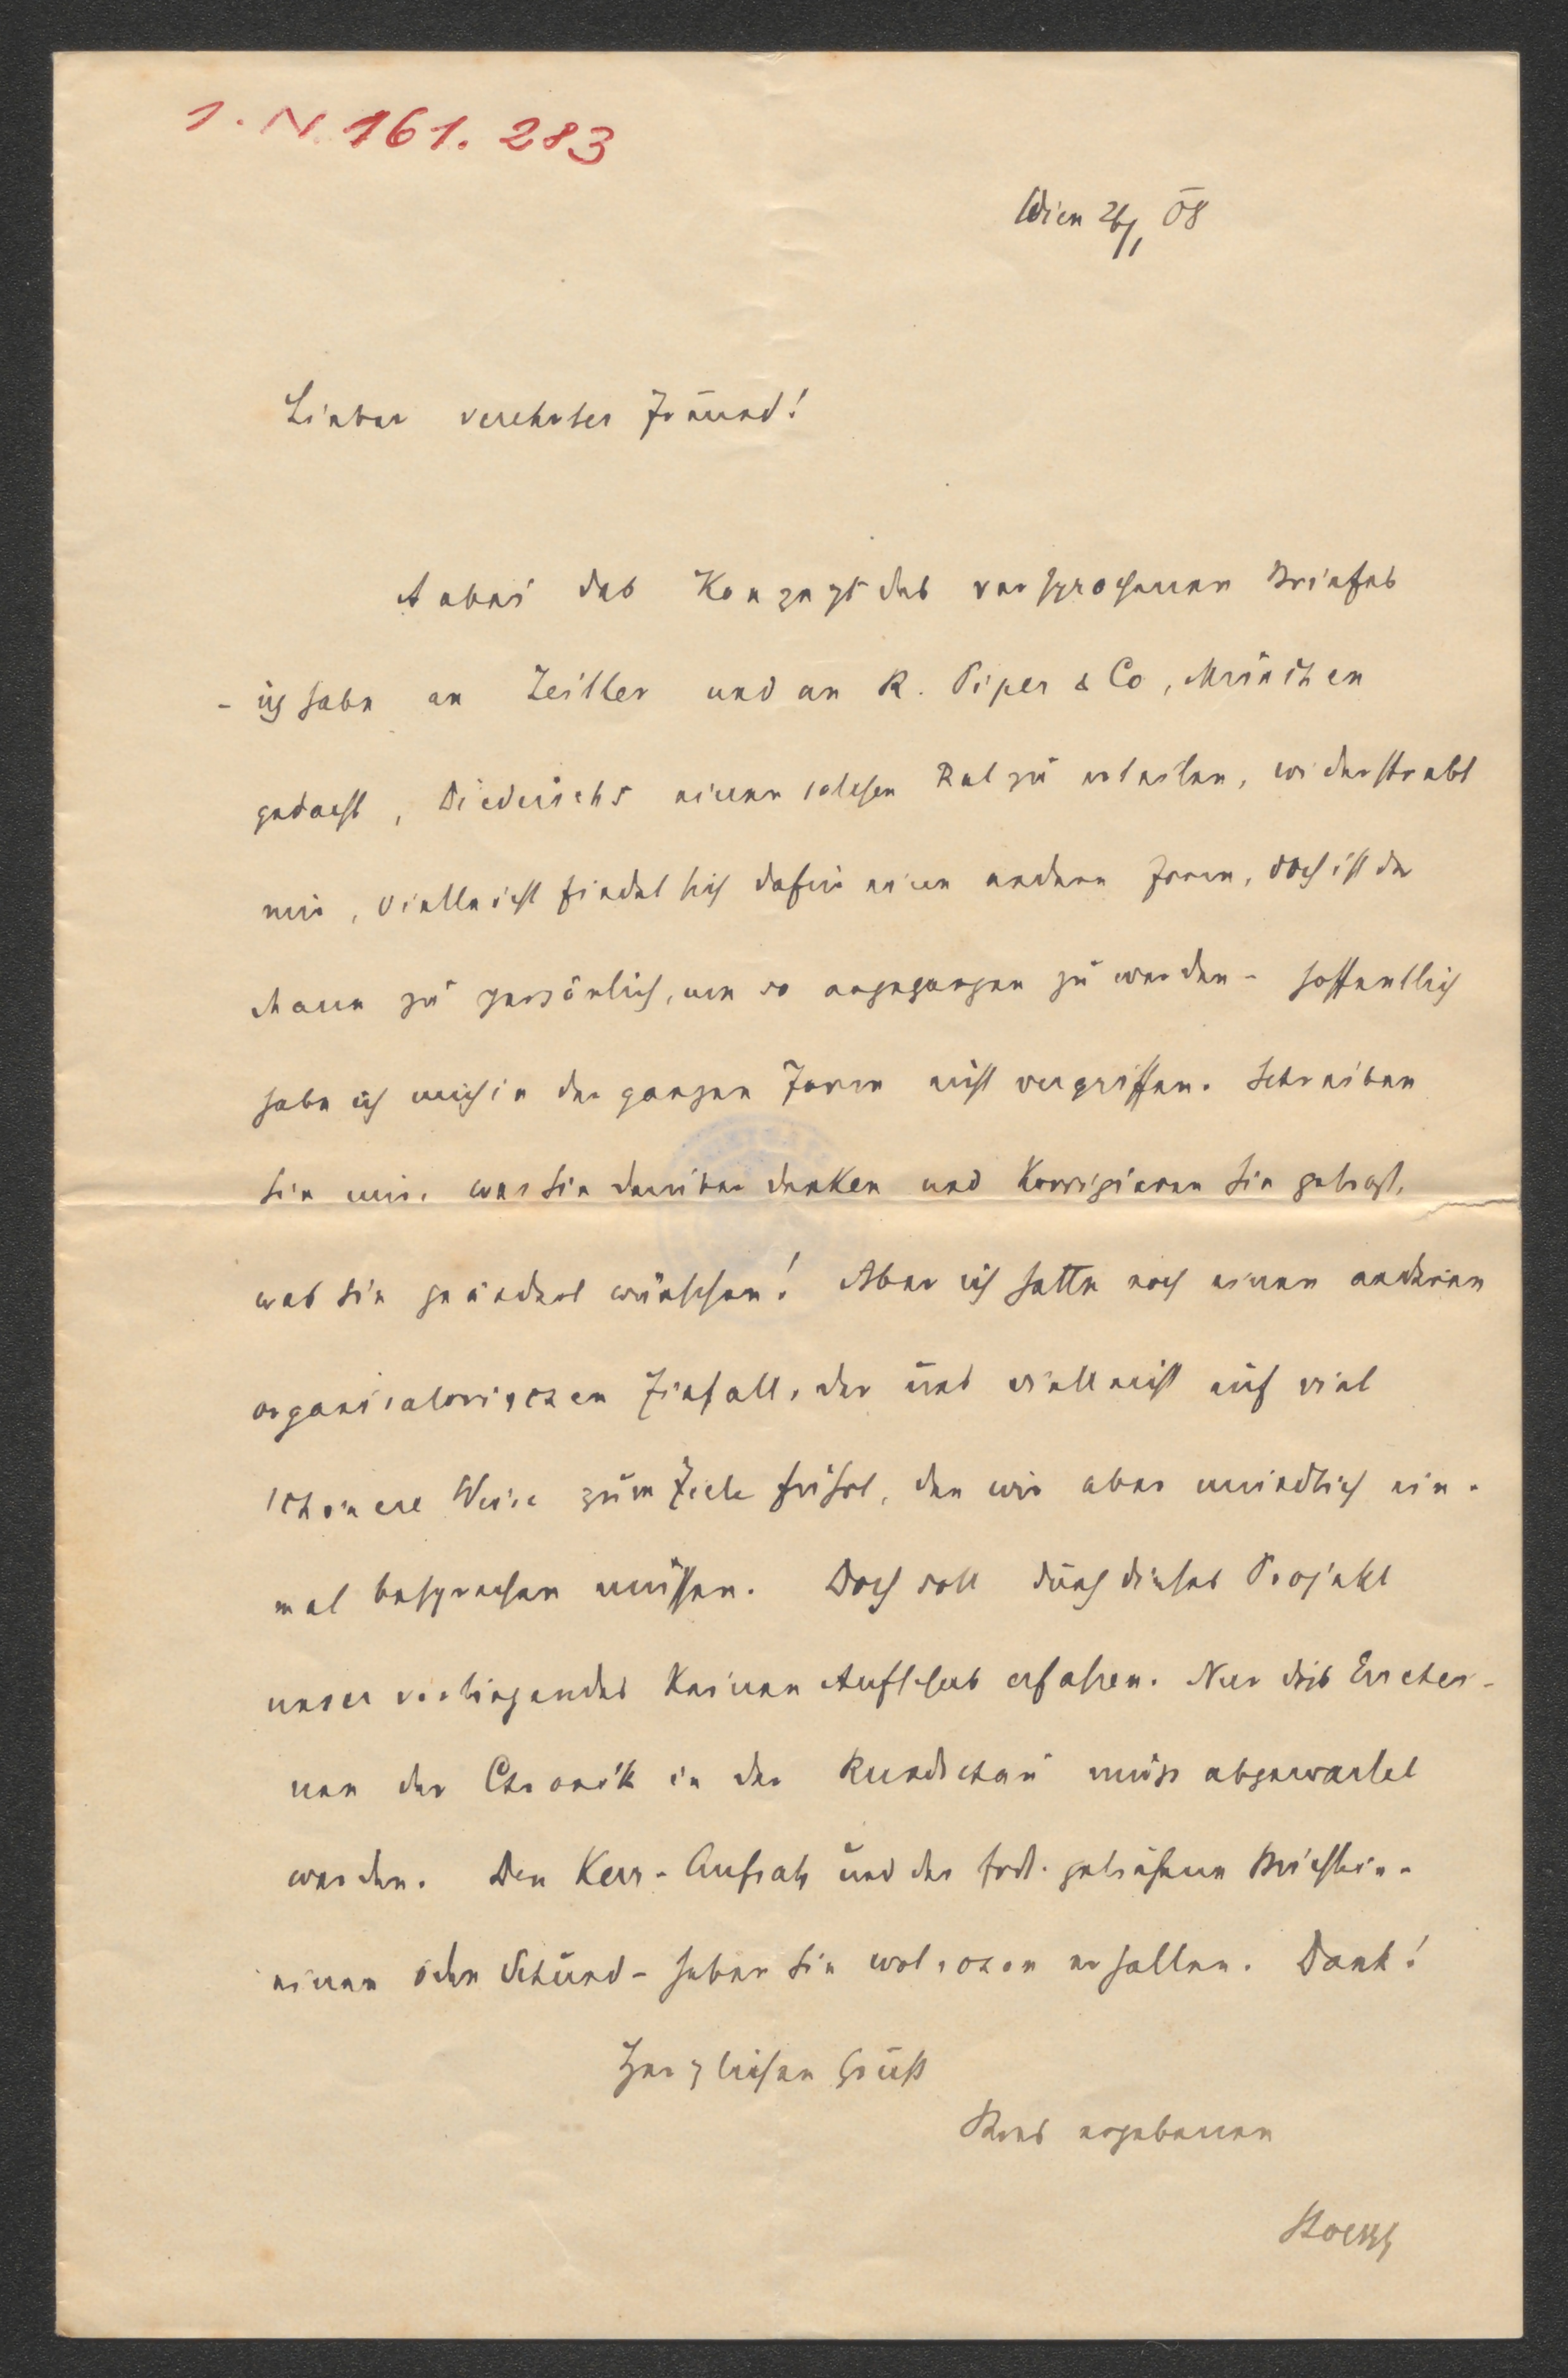 I. N. 161.283
Wien 26/1 08
Lieber verehrter Freund!
Anbei das Konzept des versprochenen Briefes
- ich habe an Zeitler und an R. Piper & Co, München
gedacht, Diederichs einen solchen Rat zu erteilen, widerstrebt
mir, vielleicht findet sich dafür eine andere Form, doch ist der
Mann zu persönlich, um so angegangen zu werden - hoffentlich
habe ich mich in der ganzen Form nicht vergriffen. Schreiben
Sie mir, was Sie darüber denken und korrigieren Sie getrost,
was Sie geändert wünschen! Aber ich hatte noch einen anderen
organisatorischen Einfall, der uns vielleicht auf viel
schönere Weise zum Ziele führt, den wir aber mündlich ein-
mal besprechen müssen. Doch soll durch dieses Projekt
unser vorliegendes keinen Aufschub erfahren. Nur das Erschei-
nen der Chronik in der Rundschau muss abgewartet
werden. Den Kerr-Aufsatz und der
einen öden Schund - haben Sie wol schon erhalten. Dank!
Herzlichen Gruß
Ihres ergebenen
Stoessl